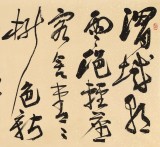 渭城朝
雨浥輕塵
客舍青々
柳色新